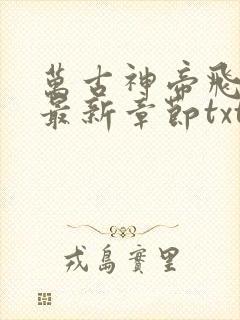 萬古神帝飛
最新章節txt
戎島實里